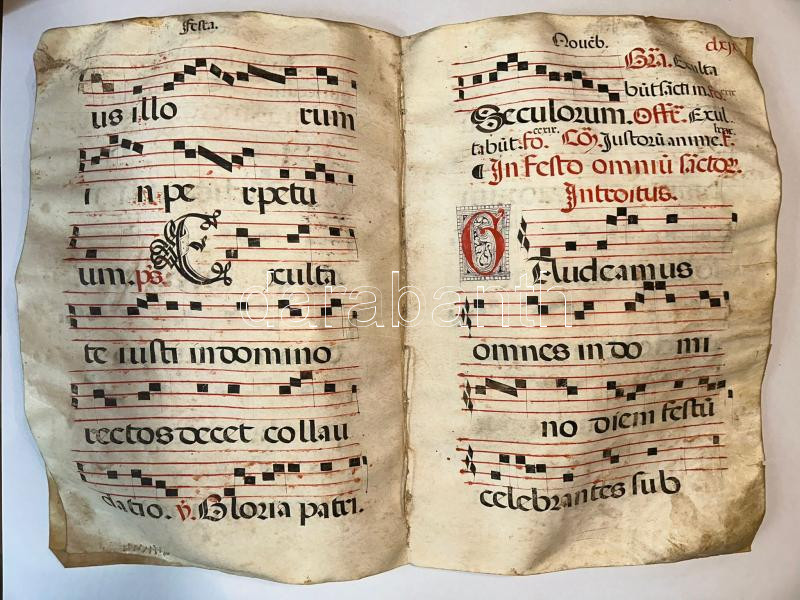 Festa.
us illo rum
in pe rpetu
um. ps. Exulta
te iusti in domino
rectos decet collau
datio. ℣. Gloria patri.
Nouēb.
Gra. Exulta
būt sācti in.
Seculorum. Offe. Exul
tabūt. fo. Co. Justorū anime. f.
¶ In festo omniū sāctor.
Introitus.
GAudeamus
omnes in do mi
no diem festū
celebrantes sub
darabanth